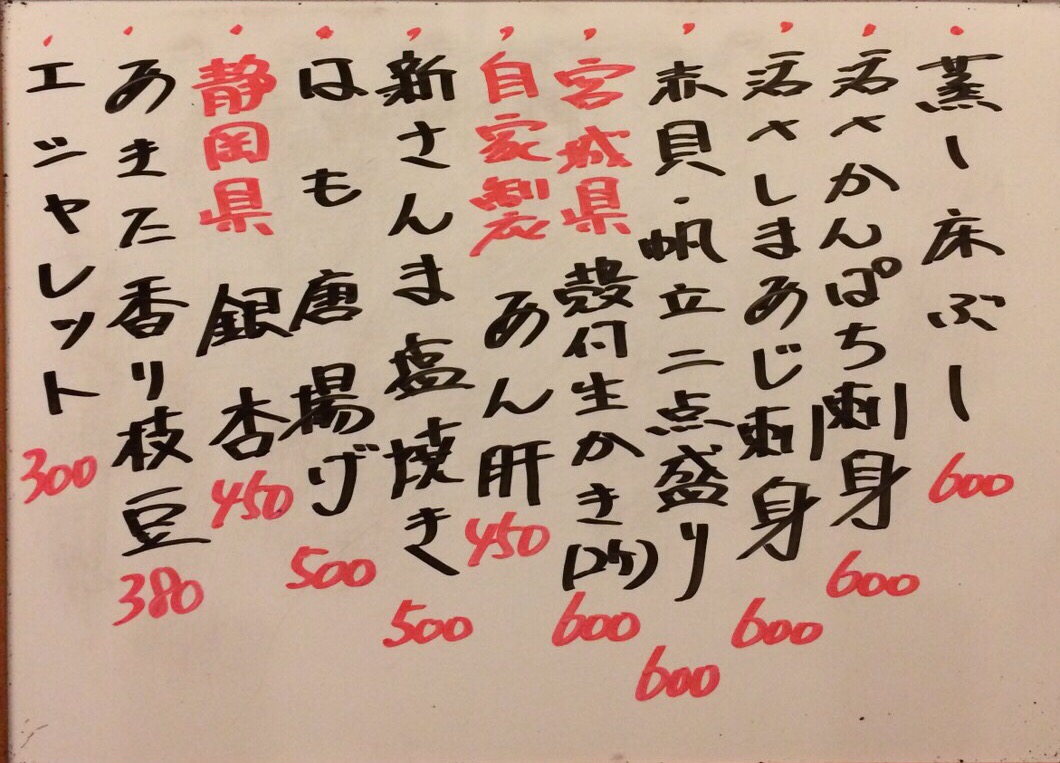 蒸し床ぶし 600
活〆かんぱち刺身 600
活〆しまあじ刺身 600
赤貝・帆立二点盛り 600
宮城県 殻付生かき(2ケ) 600
自家製 あん肝 450
新さんま塩焼き 500
はも唐揚げ 500
静岡県 銀杏 450
あきた香り枝豆 380
エシャレット 300